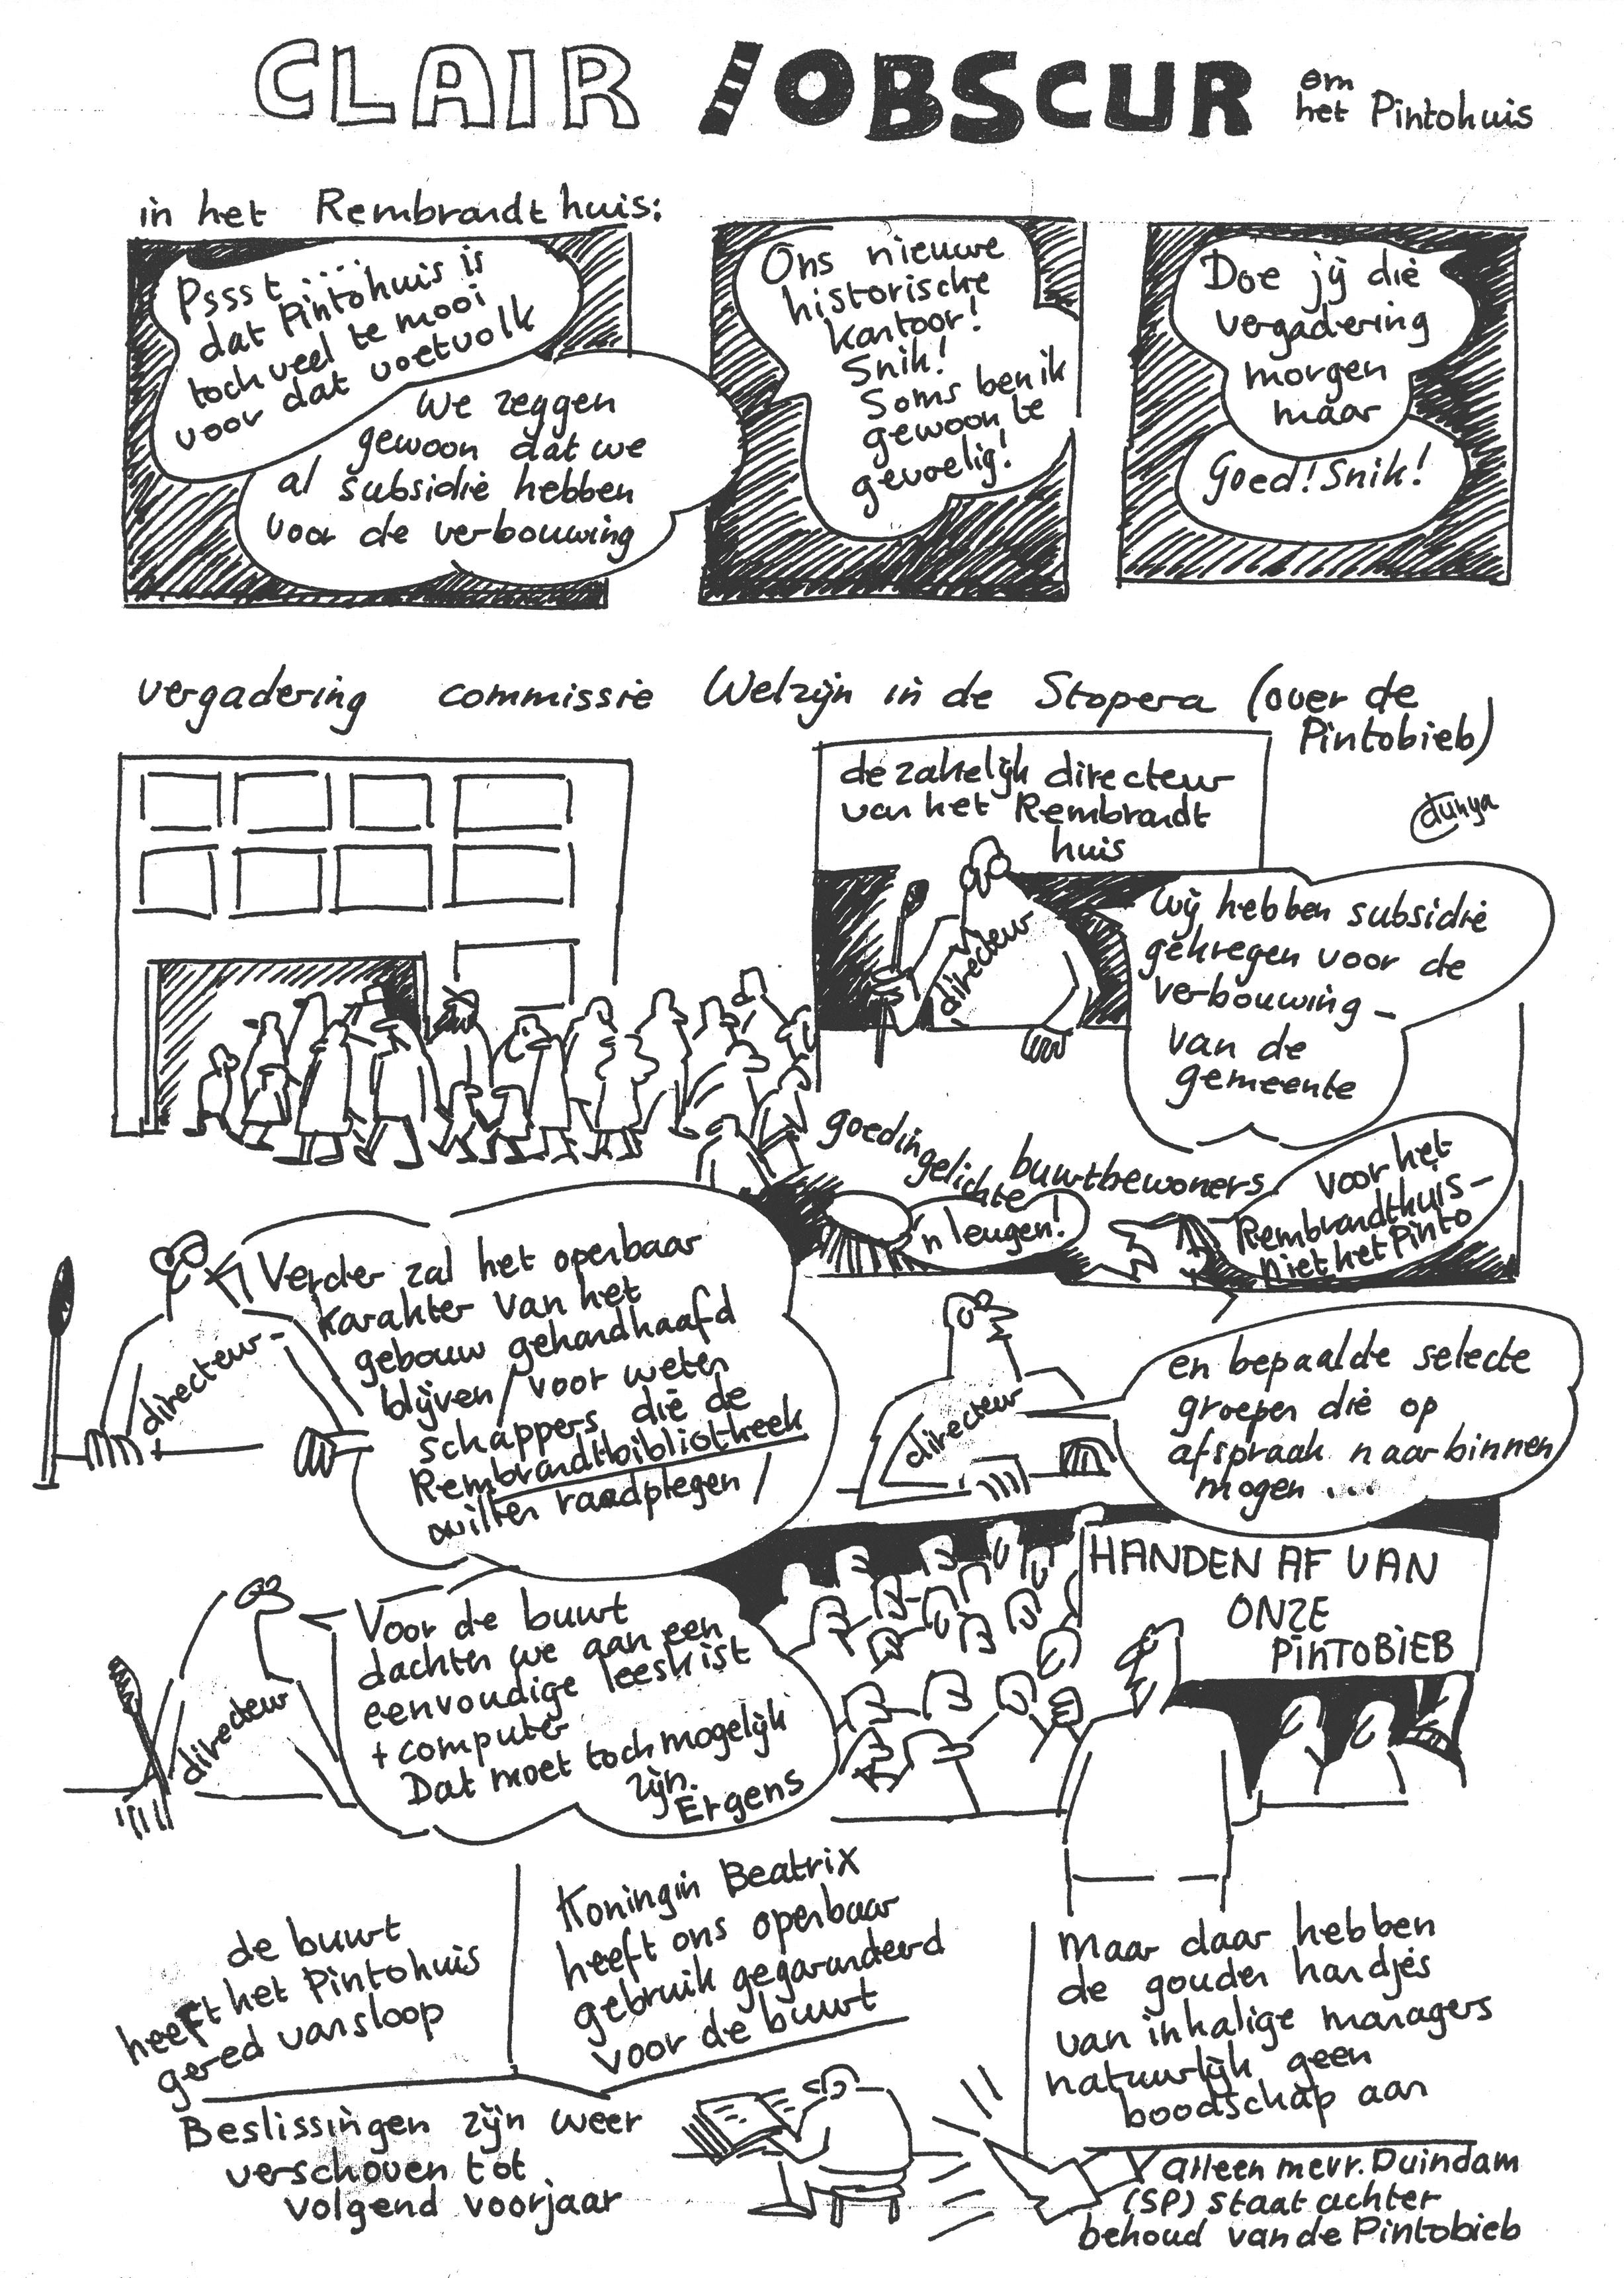 CLAIR / OBSCUR
om
het Pintohuis
in het Rembrandthuis:
Pssst ....
dat Pintohuis is
toch veel te mooi
voor dat voetvolk
We zeggen
gewoon dat we
al subsidie hebben
voor de verbouwing
Ons nieuwe
historische
kantoor!
Snik!
Soms ben ik
gewoon te
gevoelig!
Doe jij die
vergadering
morgen
maar
Goed! Snik!
vergadering commissie Welzijn in de Stopera (over de
Pintobieb)
dunya
de zakelijk directeur
van het Rembrandt
huis
directeur
Wij hebben subsidie
gekregen voor de
verbouwing -
van de
gemeente
goed in
gelichte
buurtbewoners
'n leugen!
voor het
Rembrandthuis -
niet het Pinto
directeur -
Verder zal het openbaar
karakter van het
gebouw gehandhaafd
blijven / voor weten
schappers die de
Rembrandtbibliotheek
willen raadplegen /
directeur
en bepaalde selecte
groepen die op
afspraak naar binnen
mogen ...
directeur
Voor de buurt
dachten we aan een
eenvoudige leeskist
+ computer
Dat moet toch mogelijk
zijn.
Ergens
HANDEN AF VAN
ONZE
PINTOBIEB
de buurt
heeft het Pintohuis
gered van sloop
Koningin Beatrix
heeft ons openbaar
gebruik gegarandeerd
voor de buurt
Maar daar hebben
de gouden handjes
van inhalige managers
natuurlijk geen
boodschap aan
Beslissingen zijn weer
verschoven tot
volgend voorjaar
Alleen mevr. Duindam
(SP) staat achter
behoud van de Pintobieb